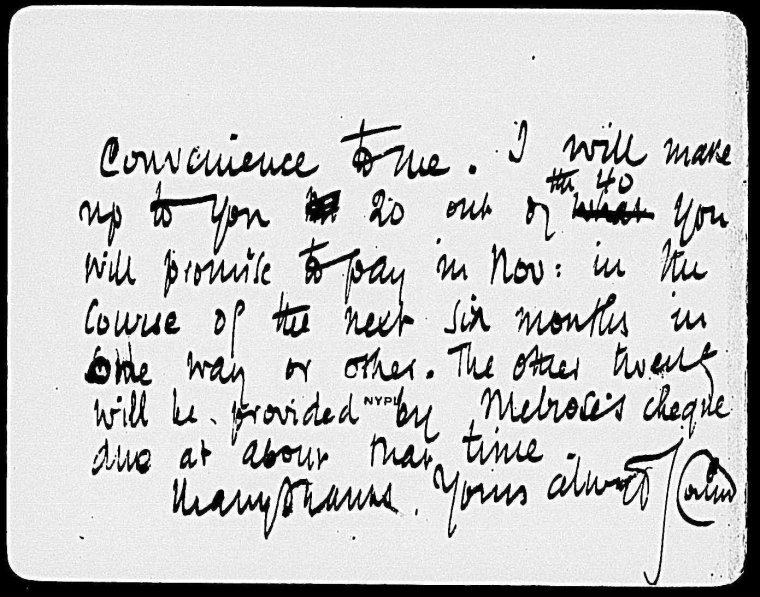 Convenience to me. I will make
the 40
up to you 20 out of what you
will promise to pay in Nov: in the
course of the next six months in
one way or other. The other twenty
will be provided by Melrose's cheque
NYPL
due at about that time
Many thanks. Yours always